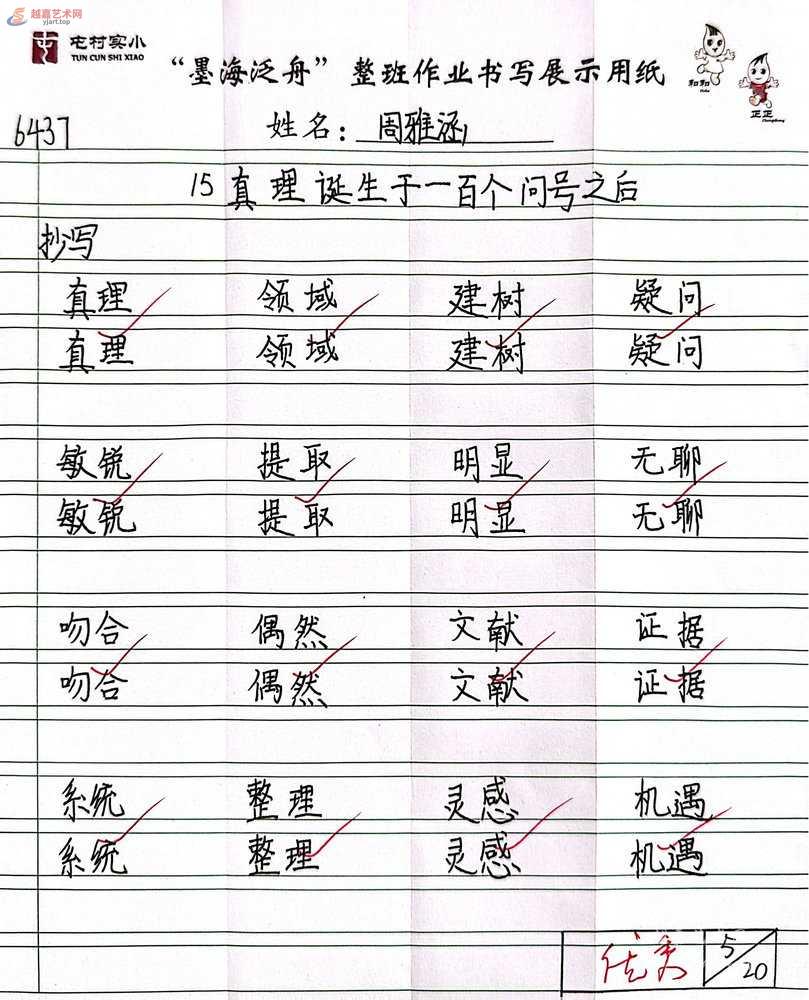 越嘉艺术网
yjart.top
屯村实小
TUN CUN SHI XIAO
“墨海泛舟”整班作业书写展示用纸
和和
Hehe
正正
Zhengzheng
6437
姓名：周雅涵
15 真理诞生于一百个问号之后
抄写
真理 领域 建树 疑问
真理 领域 建树 疑问
敏锐 提取 明显 无聊
敏锐 提取 明显 无聊
吻合 偶然 文献 证据
吻合 偶然 文献 证据
系统 整理 灵感 机遇
系统 整理 灵感 机遇
优秀 5/20